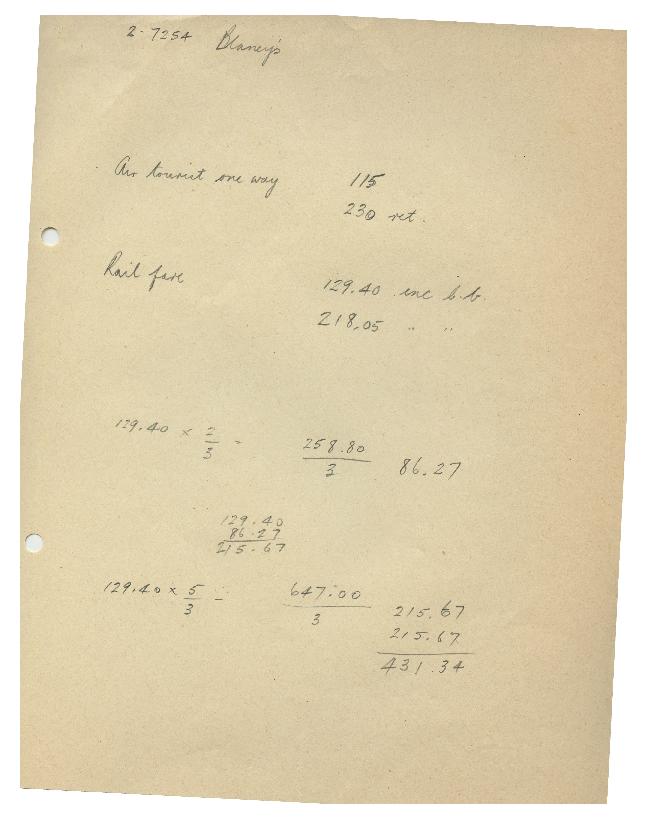 2-7254 Blaney's
Air tourist one way 115
230 ret.
Rail fare
129.40 inc b.b.
218.05 " "
129.40 × 2/3 = 258.80/3 86.27
129.40
86.27
215.67
129.40 × 5/3 = 647.00/3
215.67
215.67
431.34